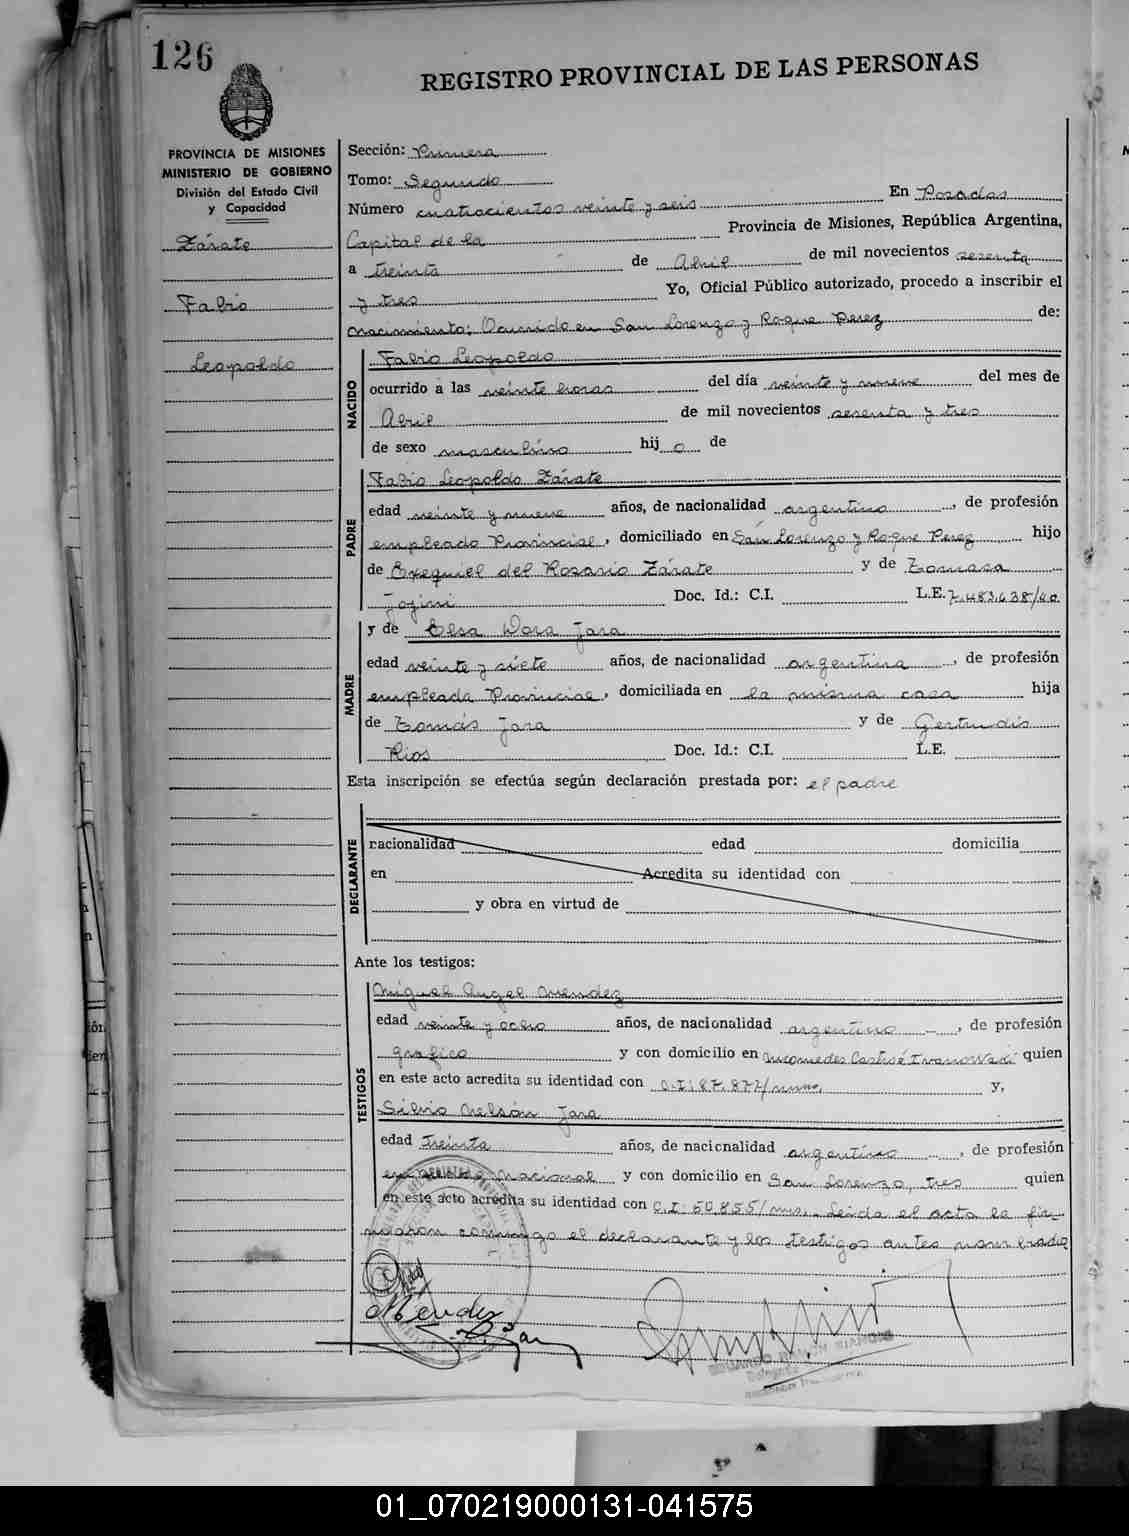 126
REGISTRO PROVINCIAL DE LAS PERSONAS
PROVINCIA DE MISIONES
MINISTERIO DE GOBIERNO
División del Estado Civil
y Capacidad
Zárate
Fabio
Leopoldo
Sección: Primera
Tomo: Segundo
Número cuatrocientos veinte y seis En Posadas
Capital de la Provincia de Misiones, República Argentina,
a treinta de Abril de mil novecientos sesenta
y tres Yo, Oficial Público autorizado, procedo a inscribir el
nacimiento: Ocurrido en San Lorenzo y Roque Perez de:
NACIDO
Fabio Leopoldo
ocurrido a las veinte horas del día veinte y nueve del mes de
Abril de mil novecientos sesenta y tres
de sexo masculino hijo de
PADRE
Fabio Leopoldo Zárate
edad veinte y nueve años, de nacionalidad argentino, de profesión
empleado Provincial, domiciliado en San Lorenzo y Roque Perez hijo
de Exequiel del Rosario Zárate y de Tomasa
Doc. Id.: C.I. L.E. 7.483.638/60
MADRE
y de Elsa Dora Jara
edad veinte y siete años, de nacionalidad argentina, de profesión
empleada Provincial, domiciliada en la misma casa hija
de Tomás Jara y de Gertrudis
Rios Doc. Id.: C.I. L.E.
Esta inscripción se efectúa según declaración prestada por: el padre
DECLARANTE
nacionalidad edad domicilia
en Acredita su identidad con
y obra en virtud de
Ante los testigos:
TESTIGOS
Miguel Angel Mendez
edad veinte y ocho años, de nacionalidad argentino, de profesión
gráfico y con domicilio en quien
en este acto acredita su identidad con C.I: 87.877/mnes. y,
Silvio Nelsón Jara
edad treinta años, de nacionalidad argentino, de profesión
empleado Nacional y con domicilio en San Lorenzo, tres quien
en este acto acredita su identidad con C.I: 50.855/mns. Leida el acta la fir-
maron conmigo el declarante y los testigos antes nombrado
Mendez
01_070219000131-041575